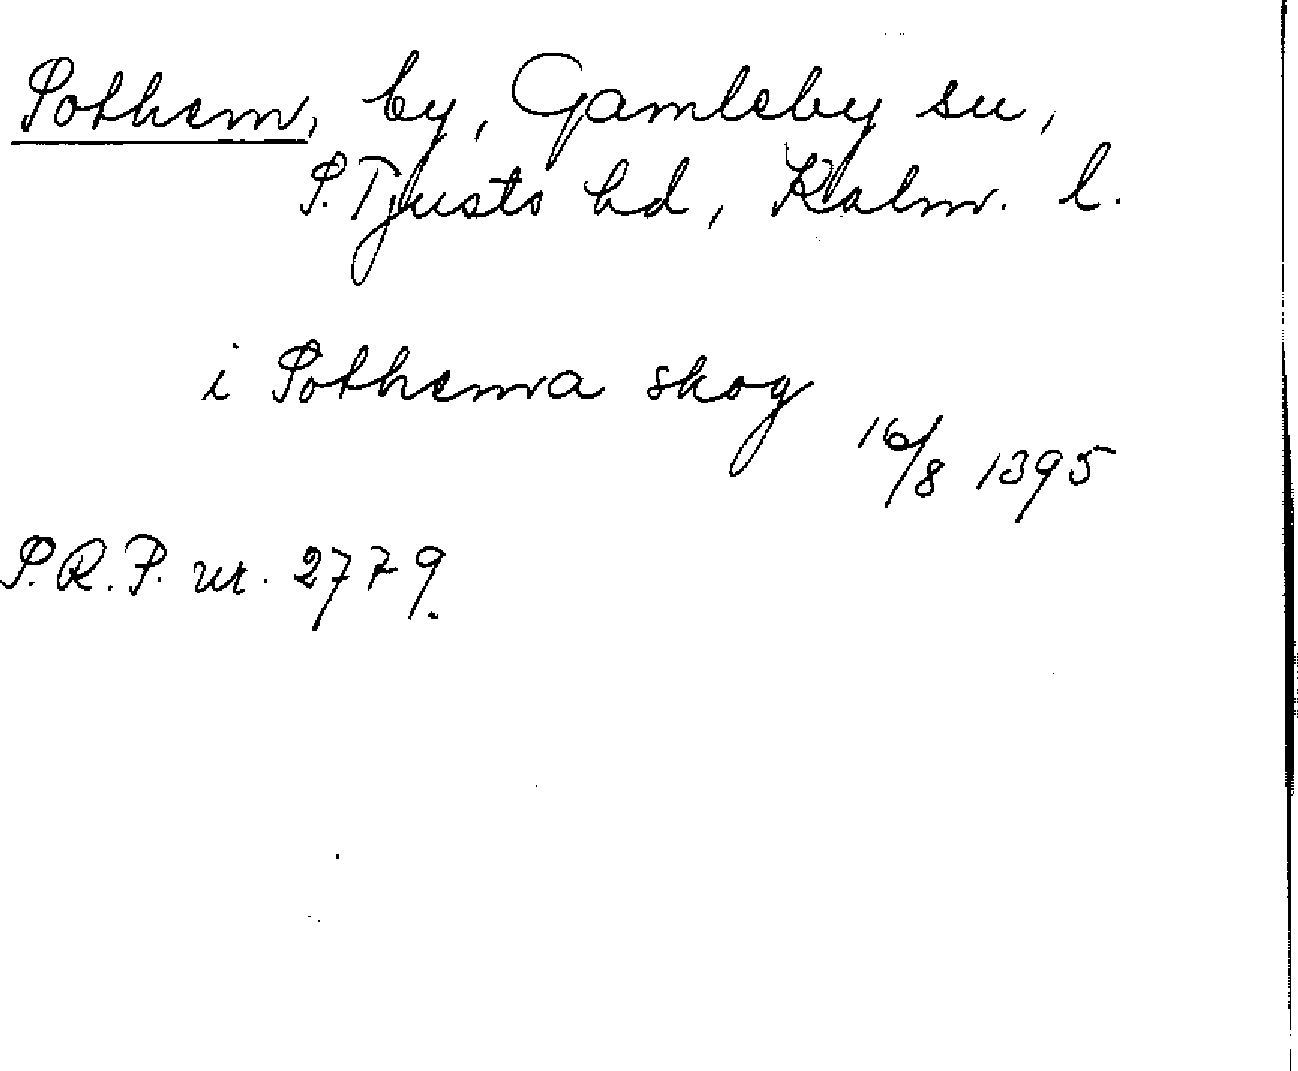 Sothem, by, Gamleby sn,
S. Tjusts hd, Kalm. l.
i Sothema skog
16/8 1395
S.R.P. nr. 2779.